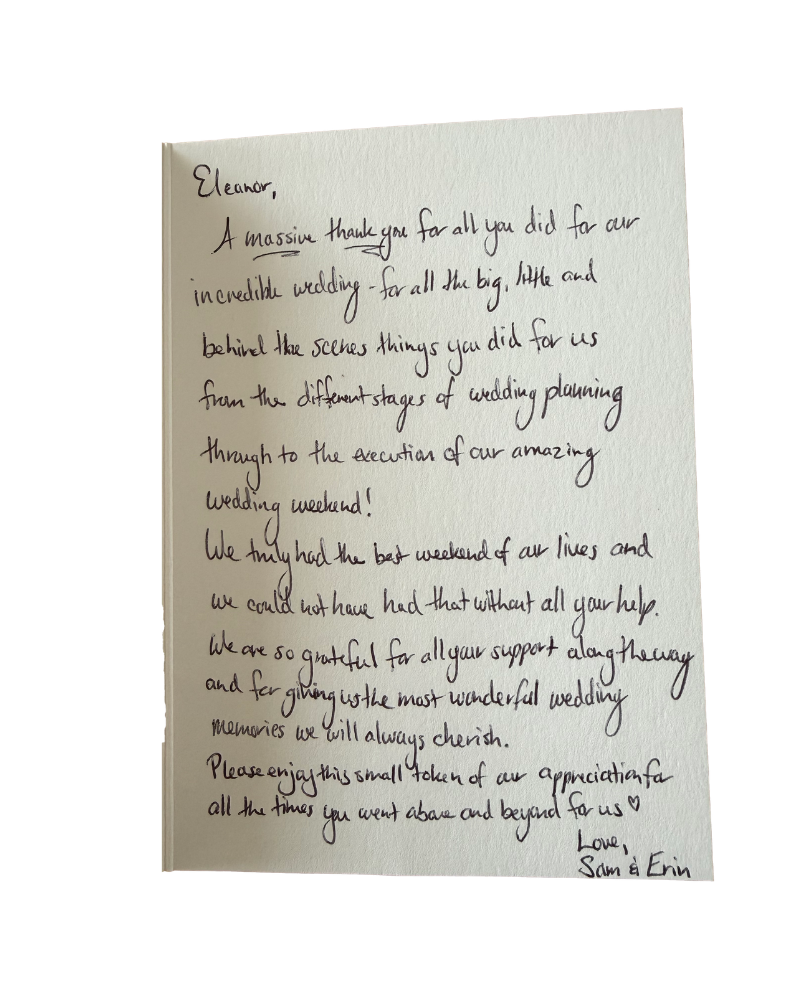 Eleanor,
A massive thank you for all you did for our
incredible wedding - for all the big, little and
behind the scenes things you did for us
from the different stages of wedding planning
through to the execution of our amazing
wedding weekend!
We truly had the best weekend of our lives and
we could not have had that without all your help.
We are so grateful for all your support along the way
and for giving us the most wonderful wedding
memories we will always cherish.
Please enjoy this small token of our appreciation for
all the times you went above and beyond for us ♡
Love,
Sam & Erin